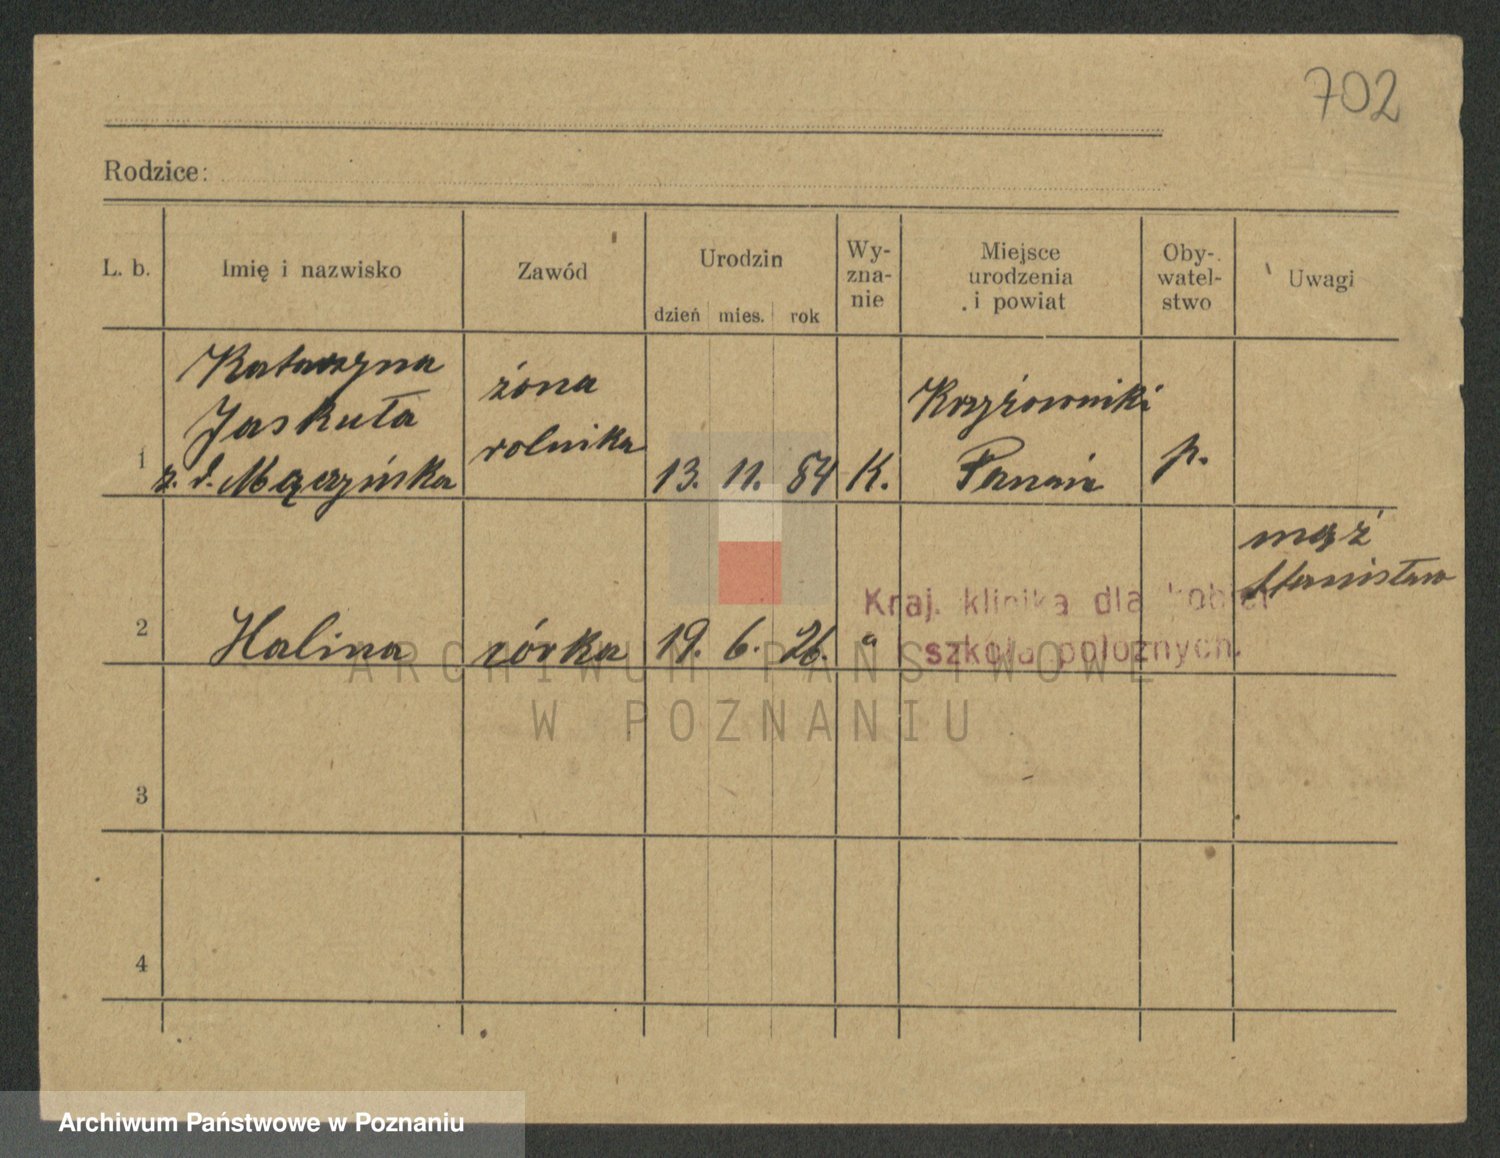 702
Rodzice:
L. b.
Imię i nazwisko
Zawód
Urodzin
dzień mies. rok
Wy-
zna-
nie
Miejsce
urodzenia
i powiat
Oby-
watel-
stwo
Uwagi
1
Katarzyna
Jaskuła
z. d. Mączyńska
żona
rolnika
13. 11. 84
K.
Krzyżowniki
p.
2
Halina
córka
19. 6. 26.
"
Kraj. klinika dla kobiet
szkoła położnych.
mąż
Stanisław
3
4
ARCHIWUM PAŃSTWOWE
W POZNANIU
Archiwum Państwowe w Poznaniu